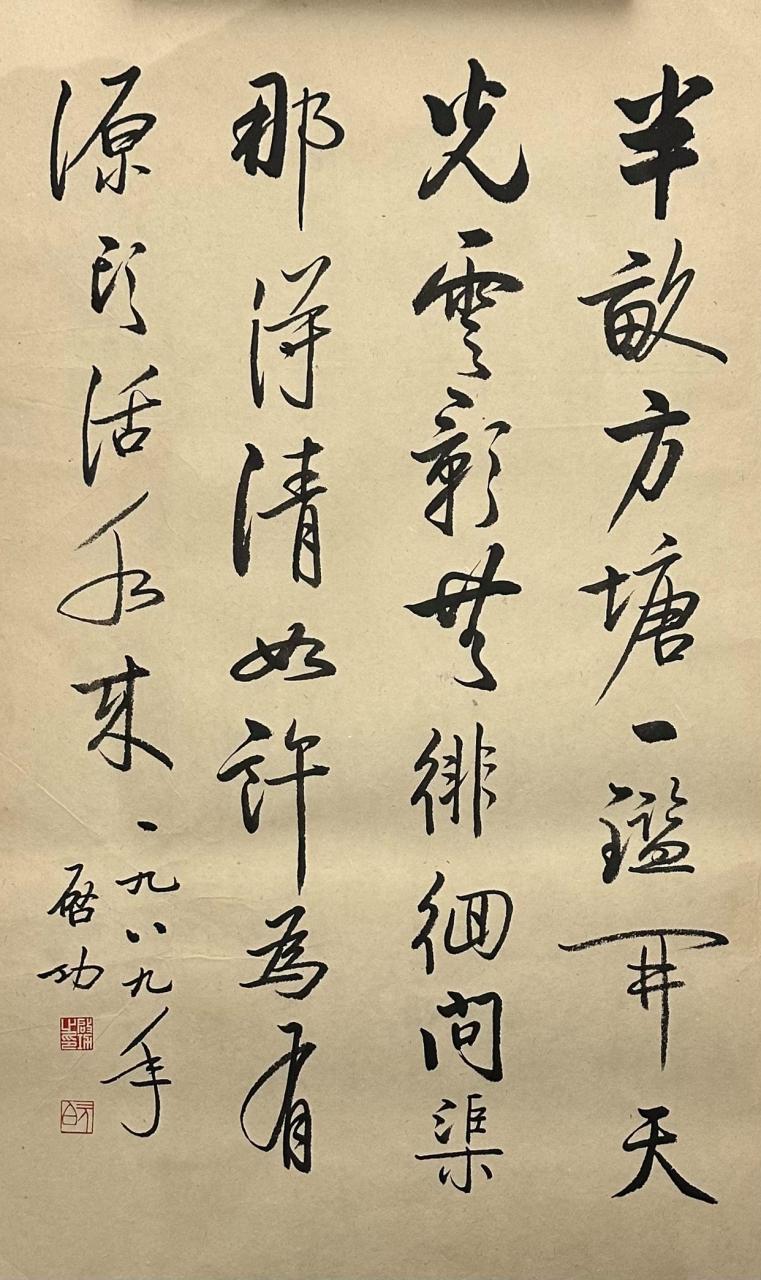 半畝方塘一鑑開天
光雲影共徘徊問渠
那得清如許為有
源頭活水來
一九八九年
启功
啟功之印
元白